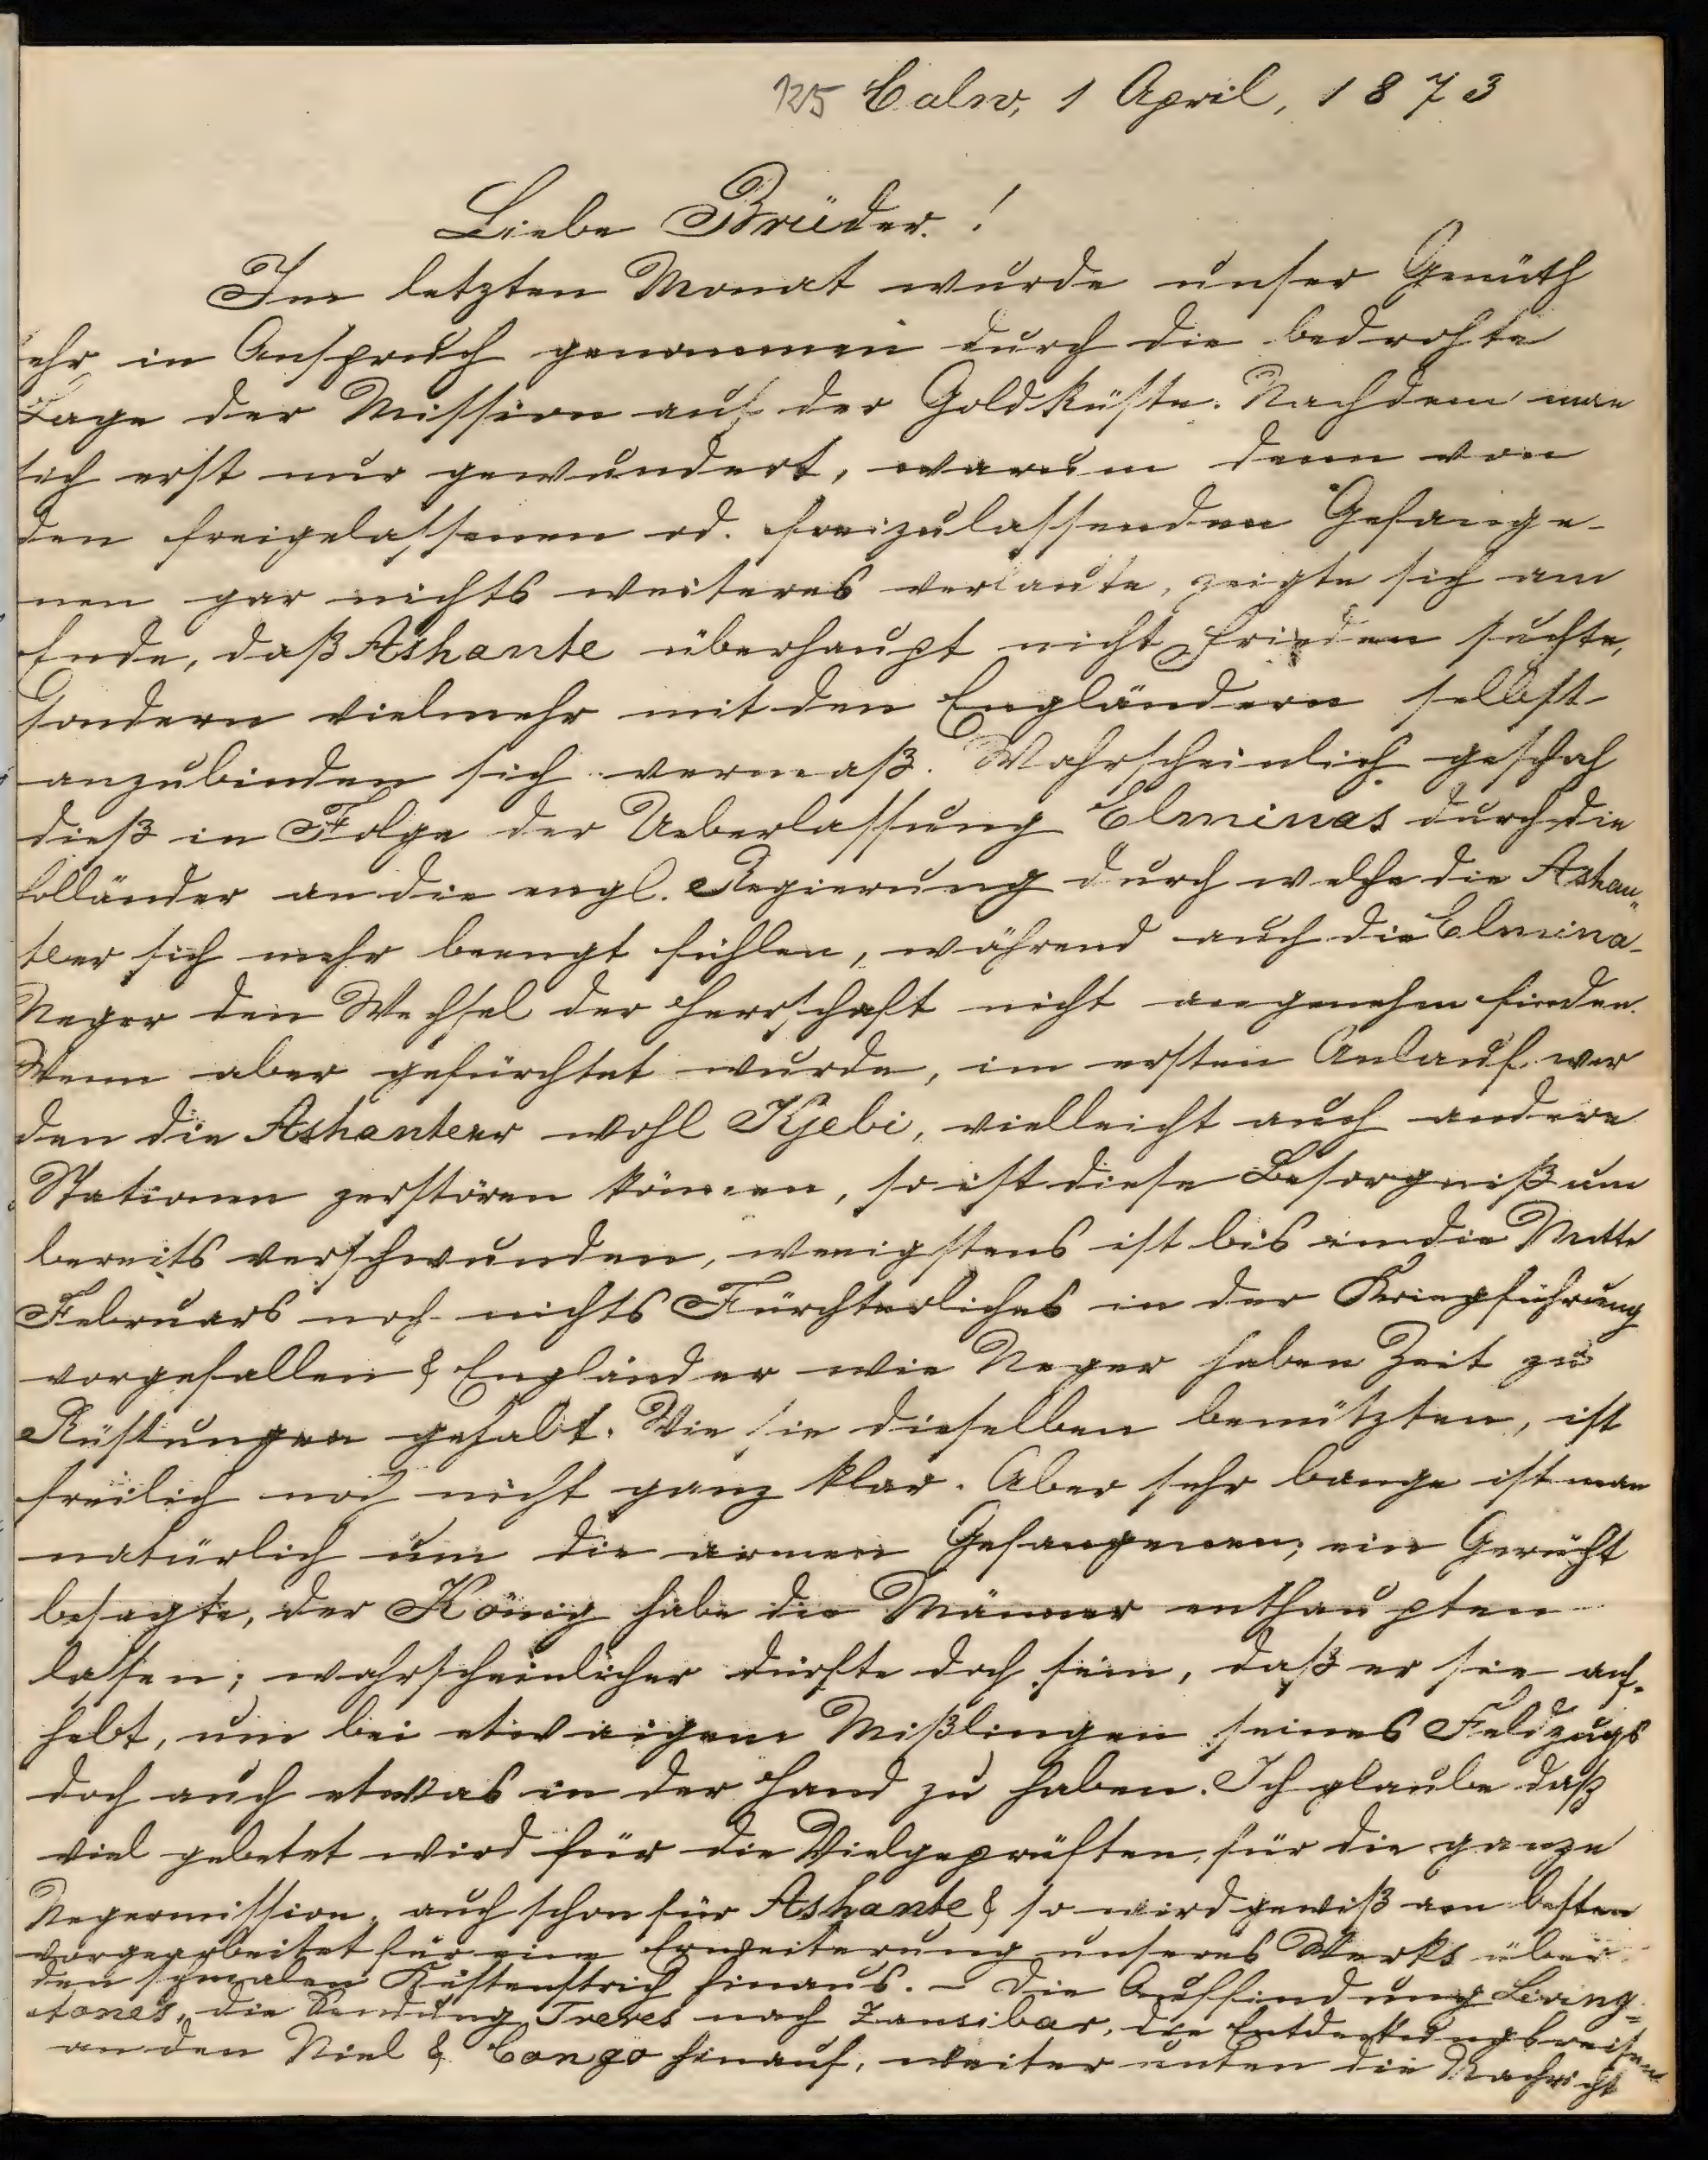 125 Calw, 1 April, 1873
Liebe Brüder!
Im letzten Monat wurde unser Gemüth
sehr in Anspruch genommen durch die bedrohte
Lage der Mission auf der Goldküste. Nachdem man
sich erst nur gewundert, warum denn von
den freigelassenen od. freizulassenden Gefange-
nen gar nichts weiteres verlaute, zeigte sich am
Ende, daß Ashante überhaupt nicht Frieden suchte,
sondern vielmehr mit den Engländern selbst
anzubinden sich vermaß. Wahrscheinlich geschah
dieß in Folge der Ueberlassung Elminas durch die
Holländer an die engl. Regierung durch welche die Ashan„
teer sich mehr beengt fühlen, während auch die Elmina-
Neger den Wechsel der Herrschaft nicht angenehm finden.
Wenn aber gefürchtet wurde, im ersten Anlauf wer
den die Ashanteer wohl Kjebi, vielleicht auch andere
Stationen zerstören können, so ist diese Besorgniß nun
bereits verschwunden, wenigstens ist bis in die Mitte
Februars noch nichts Fürchterliches in der Kriegführung
vorgefallen & Engländer wie Neger haben Zeit zu
Rüstungen gehabt. Wie sie dieselben benützten, ist
freilich noch nicht ganz klar. Aber sehr bange ist man
natürlich um die armen Gefangenen; ein Gerücht
besagte, der König habe die Männer enthaupten
lassen; wahrscheinlicher dürfte doch sein, daß er sie auf-
hebt, um bei etwaigem Mißlingen seines Feldzugs
doch auch etwas in der Hand zu haben. Ich glaube daß
viel gebetet wird für die Vielgeprüften, für die ganze
Negermission, auch schon für Ashante & so wird gewiß am besten
vorgearbeitet für eine Erweiterung unseres Werks über
den schmalen Küstenstrich hinaus. - Die Auffindung Living-
stones, die Sendung Freres nach Zansibar, die Entdeckungsreisen
an den Niel & Congo hinauf, weiter unten die Nachricht